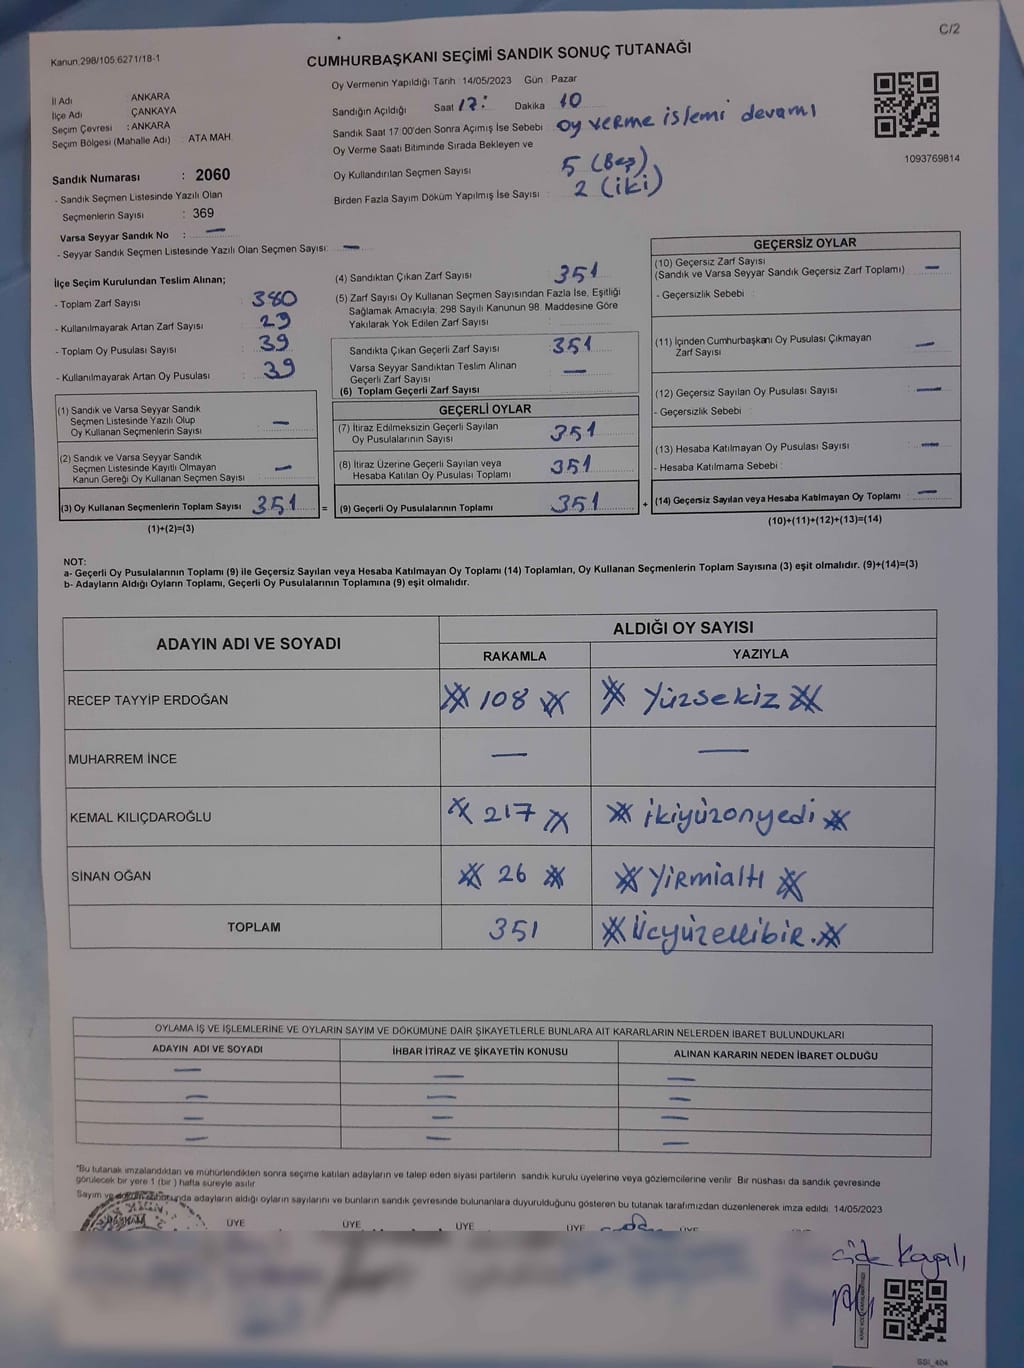 C/2
Kanun.298/105.6271/18-1
CUMHURBAŞKANI SEÇİMİ SANDIK SONUÇ TUTANAĞI
İl Adı ANKARA
İlçe Adı ÇANKAYA
Seçim Çevresi : ANKARA
Seçim Bölgesi (Mahalle Adı) ATA MAH.
Sandık Numarası : 2060
- Sandık Seçmen Listesinde Yazılı Olan
Seçmenlerin Sayısı : 369
Varsa Seyyar Sandık No : —
- Seyyar Sandık Seçmen Listesinde Yazılı Olan Seçmen Sayısı: —
Oy Vermenin Yapıldığı Tarih : 14/05/2023 Gün Pazar
Sandığın Açıldığı Saat 17: Dakika 10
Sandık Saat 17.00'den Sonra Açımış İse Sebebi : oy verme işlemi devamı
Oy Verme Saati Bitiminde Sırada Bekleyen ve
Oy Kullandırılan Seçmen Sayısı 5 (Beş)
Birden Fazla Sayım Döküm Yapılmış İse Sayısı : 2 (iki)
1093769814
İlçe Seçim Kurulundan Teslim Alınan;
- Toplam Zarf Sayısı : 380
- Kullanılmayarak Artan Zarf Sayısı : 29
- Toplam Oy Pusulası Sayısı : 39
- Kullanılmayarak Artan Oy Pusulası : 39
(1) Sandık ve Varsa Seyyar Sandık
Seçmen Listesinde Yazılı Olup
Oy Kullanan Seçmenlerin Sayısı —
(2) Sandık ve Varsa Seyyar Sandık
Seçmen Listesinde Kayıtlı Olmayan
Kanun Gereği Oy Kullanan Seçmen Sayısı —
(3) Oy Kullanan Seçmenlerin Toplam Sayısı 351 =
(1)+(2)=(3)
(4) Sandıktan Çıkan Zarf Sayısı 351
(5) Zarf Sayısı Oy Kullanan Seçmen Sayısından Fazla İse, Eşitliği
Sağlamak Amacıyla; 298 Sayılı Kanunun 98. Maddesine Göre
Yakılarak Yok Edilen Zarf Sayısı :
Sandıkta Çıkan Geçerli Zarf Sayısı 351
Varsa Seyyar Sandıktan Teslim Alınan
Geçerli Zarf Sayısı —
(6) Toplam Geçerli Zarf Sayısı
GEÇERLİ OYLAR
(7) İtiraz Edilmeksizin Geçerli Sayılan
Oy Pusulalarının Sayısı 351
(8) İtiraz Üzerine Geçerli Sayılan veya
Hesaba Katılan Oy Pusulası Toplamı 351
(9) Geçerli Oy Pusulalarının Toplamı 351 +
GEÇERSİZ OYLAR
(10) Geçersiz Zarf Sayısı
(Sandık ve Varsa Seyyar Sandık Geçersiz Zarf Toplamı) —
- Geçersizlik Sebebi :
(11) İçinden Cumhurbaşkanı Oy Pusulası Çıkmayan
Zarf Sayısı —
(12) Geçersiz Sayılan Oy Pusulası Sayısı —
- Geçersizlik Sebebi :
(13) Hesaba Katılmayan Oy Pusulası Sayısı —
- Hesaba Katılmama Sebebi :
(14) Geçersiz Sayılan veya Hesaba Katılmayan Oy Toplamı —
(10)+(11)+(12)+(13)=(14)
NOT:
a- Geçerli Oy Pusulalarının Toplamı (9) ile Geçersiz Sayılan veya Hesaba Katılmayan Oy Toplamı (14) Toplamları, Oy Kullanan Seçmenlerin Toplam Sayısına (3) eşit olmalıdır. (9)+(14)=(3)
b- Adayların Aldığı Oyların Toplamı, Geçerli Oy Pusulalarının Toplamına (9) eşit olmalıdır.
ADAYIN ADI VE SOYADI ALDIĞI OY SAYISI
RAKAMLA YAZIYLA
RECEP TAYYİP ERDOĞAN 108 Yüzsekiz
MUHARREM İNCE — —
KEMAL KILIÇDAROĞLU 217 ikiyüzonyedi
SİNAN OĞAN 26 Yirmialtı
TOPLAM 351 Üçyüzellibir.
OYLAMA İŞ VE İŞLEMLERİNE VE OYLARIN SAYIM VE DÖKÜMÜNE DAİR ŞİKAYETLERLE BUNLARA AİT KARARLARIN NELERDEN İBARET BULUNDUKLARI
ADAYIN ADI VE SOYADI İHBAR İTİRAZ VE ŞİKAYETİN KONUSU ALINAN KARARIN NEDEN İBARET OLDUĞU
— — —
— — —
— — —
— — —
*Bu tutanak imzalandıktan ve mühürlendikten sonra seçime katılan adayların ve talep eden siyasi partilerin sandık kurulu üyelerine veya gözlemcilerine verilir. Bir nüshası da sandık çevresinde
görülecek bir yere 1 (bir) hafta süreyle asılır.
Sayım ve adayların aldığı oyların sayılarını ve bunların sandık çevresinde bulunanlara duyurulduğunu gösteren bu tutanak tarafımızdan düzenlenerek imza edildi. 14/05/2023
ÜYE ÜYE ÜYE ÜYE ÜYE